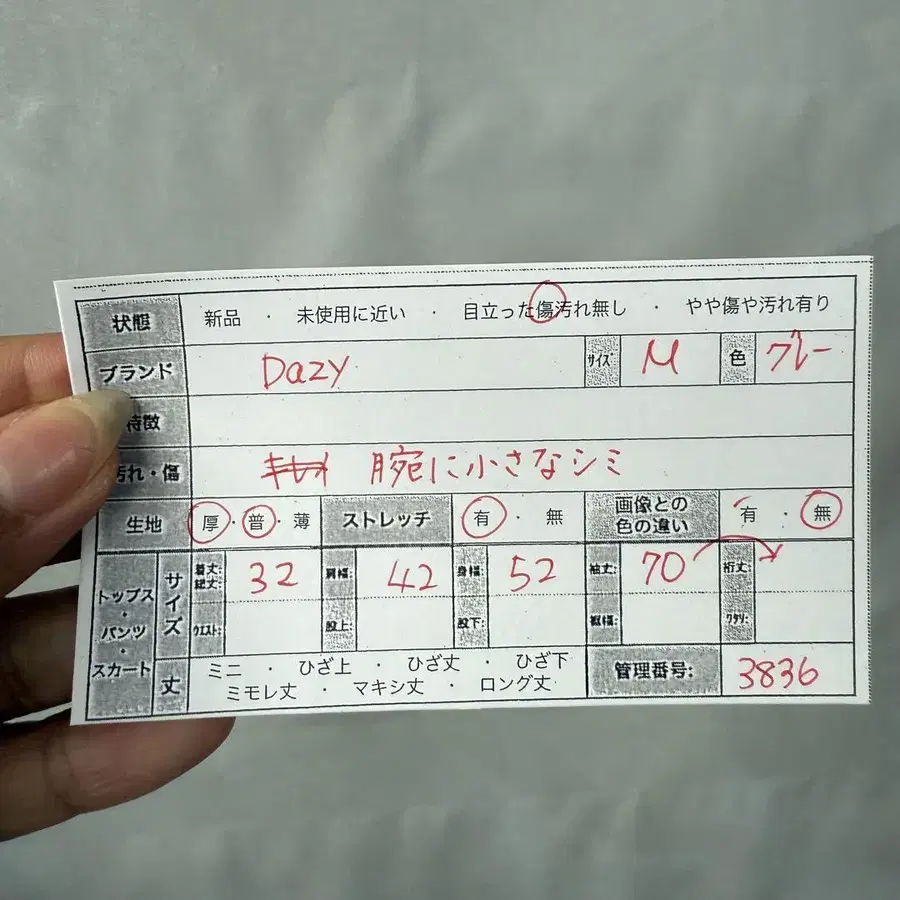 状態 新品 ・ 未使用に近い ・ 目立った傷汚れ無し ・ やや傷や汚れ有り
ブランド Dazy サイズ M 色 グレー
特徴
汚れ・傷 腕に小さなシミ
生地 厚・普・薄 ストレッチ 有 ・ 無 画像との色の違い 有 ・ 無
トップス・パンツ・スカート サイズ 着丈:総丈: 32 肩幅: 42 身幅: 52 袖丈: 70 裄丈:
ウエスト: 股上: 股下: 裾幅: ワタリ:
丈 ミニ ・ ひざ上 ・ ひざ丈 ・ ひざ下
ミモレ丈 ・ マキシ丈 ・ ロング丈
管理番号: 3836